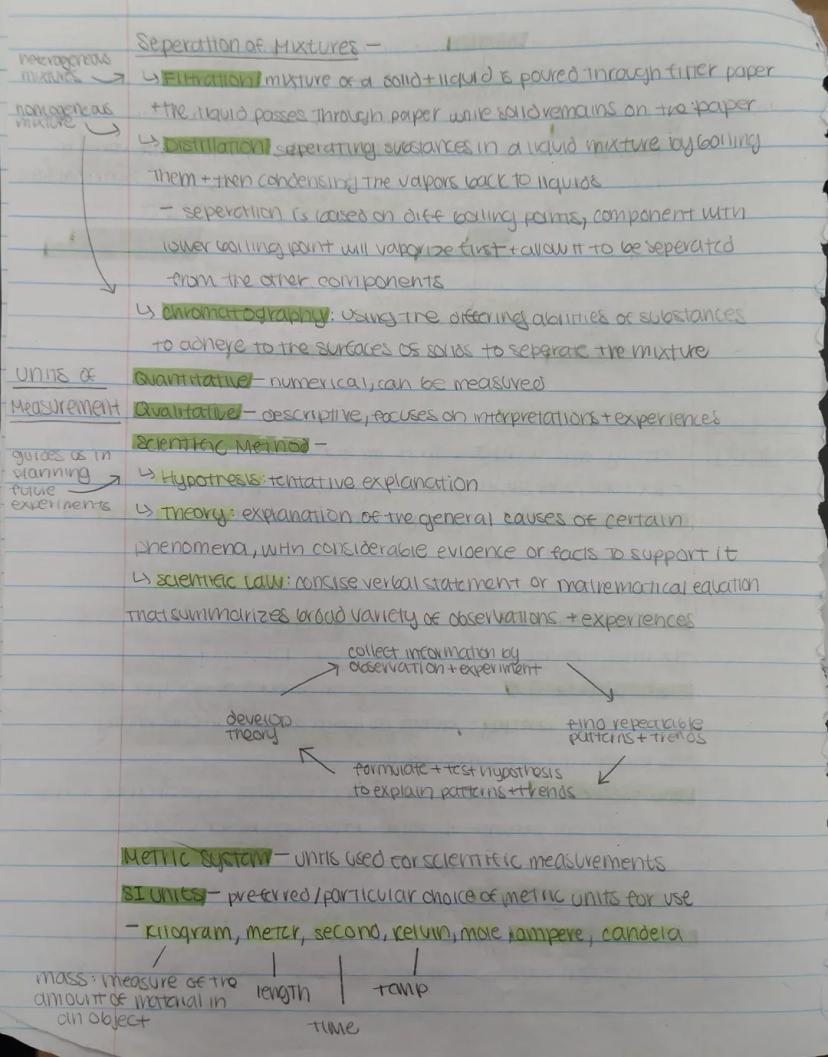 Seperation of Mixtures -
heterogeneous
mixtures → ↳ Filtration: mixture of a solid + liquid is poured through filter paper
homogeneous
mixture
+ the liquid passes through paper while solid remains on the paper
↳ Distillation: seperating substances in a liquid mixture by boiling
them + then condensing the vapors back to liquids
- seperation is based on diff boiling points, component with
lower boiling point will vaporize first + allow it to be seperated
from the other components
↳ chromatography: using the differing abilities of substances
to adhere to the surfaces of solids to seperate the mixture
Units of
Measurement
Quantitative - numerical, can be measured
Qualitative - descriptive, focuses on interpretations + experiences
Scientific Method -
guides us in
planning
future
experiments
↳ Hypothesis: tentative explanation
↳ Theory: explanation of the general causes of certain
phenomena, with considerable evidence or facts to support it
↳ scientific law: concise verbal statement or mathematical equation
that summarizes broad variety of observations + experiences
collect information by
observation + experiment
find repeatable
patterns + trends
formulate + test hypothesis
to explain patterns + trends
develop
theory
Metric System - units used for scientific measurements
SI Units - preferred/particular choice of metric units for use
- kilogram, meter, second, kelvin, mole, ampere, candela
mass: measure of the
amount of material in
an object
length
time
temp